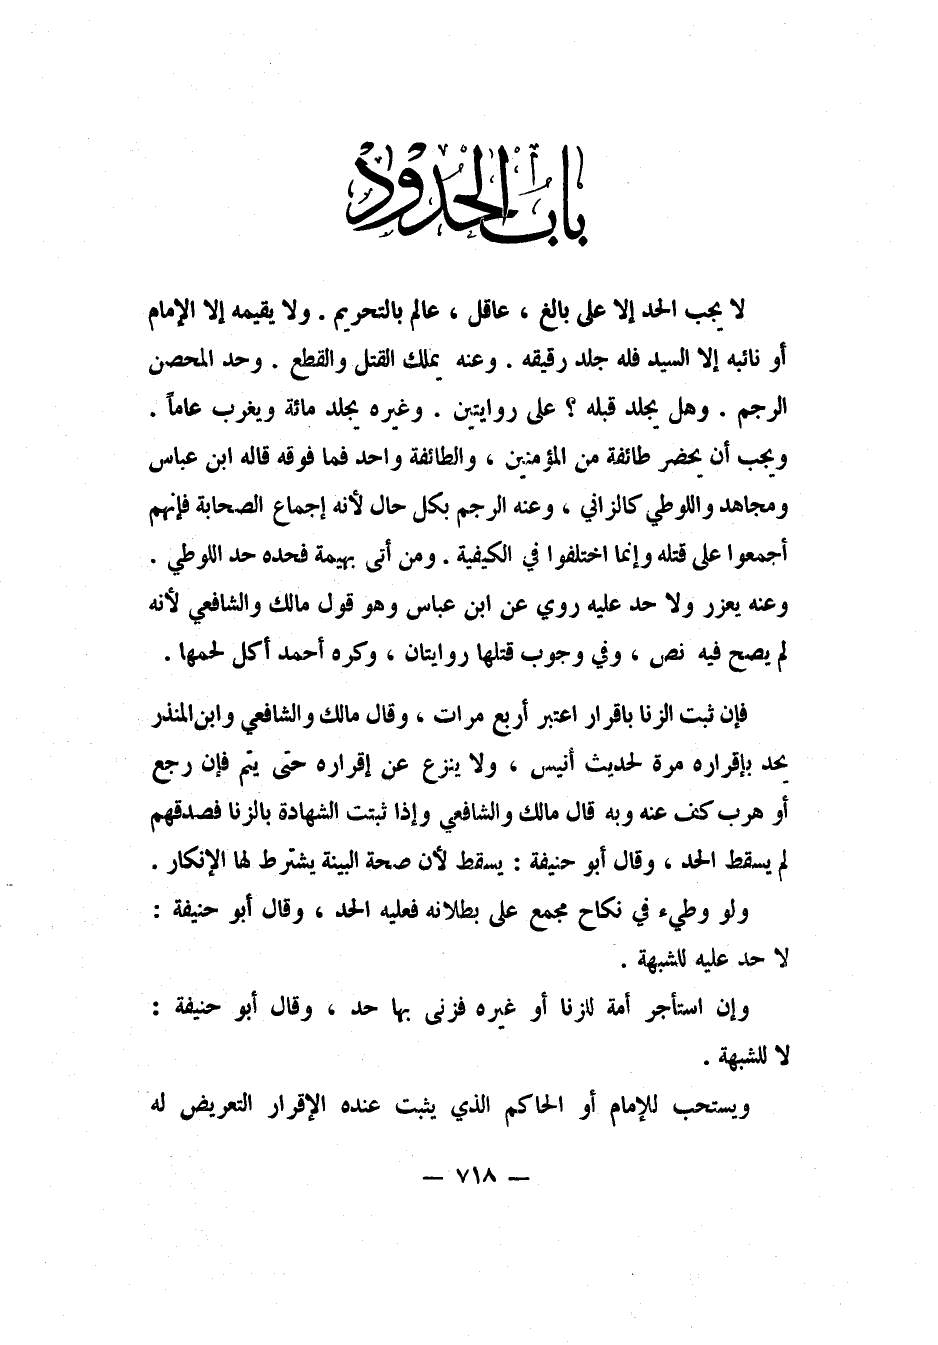 بَابُ الحُدُود
لا يجب الحد إلا على بالغ ، عاقل ، عالم بالتحريم . ولا يقيمه إلا الإمام
أو نائبه إلا السيد فله جلد رقيقه . وعنه يملك القتل والقطع . وحد المحصن
الرجم . وهل يجلد قبله ؟ على روايتين . وغيره يجلد مائة ويغرب عاماً .
ويجب أن يحضر طائفة من المؤمنين ، والطائفة واحد فما فوقه قاله ابن عباس
ومجاهد واللوطي كالزاني ، وعنه الرجم بكل حال لأنه إجماع الصحابة فإنهم
أجمعوا على قتله وإنما اختلفوا في الكيفية . ومن أتى بهيمة فحده حد اللوطي .
وعنه يعزر ولا حد عليه روي عن ابن عباس وهو قول مالك والشافعي لأنه
لم يصح فيه نص ، وفي وجوب قتلها روايتان ، وكره أحمد أكل لحمها .
فإن ثبت الزنا باقرار اعتبر أربع مرات ، وقال مالك والشافعي وابن المنذر
يحد بإقراره مرة لحديث أنيس ، ولا ينزع عن إقراره حتى يتم فإن رجع
أو هرب كف عنه وبه قال مالك والشافعي وإذا ثبتت الشهادة بالزنا فصدقهم
لم يسقط الحد ، وقال أبو حنيفة : يسقط لأن صحة البينة يشترط لها الإنكار .
ولو وطيء في نكاح مجمع على بطلانه فعليه الحد ، وقال أبو حنيفة :
لا حد عليه للشبهة .
وإن استأجر أمة للزنا أو غيره فزنى بها حد ، وقال أبو حنيفة :
لا للشبهة .
ويستحب للإمام أو الحاكم الذي يثبت عنده الإقرار التعريض له
— ٧١٨ —